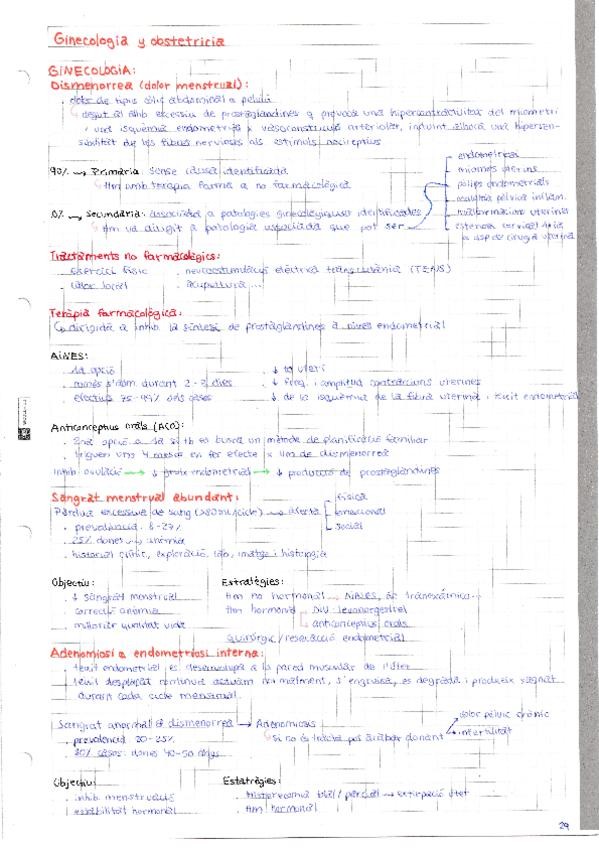 Ginecologia y obstetricia
GINECOLOGIA:
Dismenorrea (dolor menstrual):
. dolor de tipus còlic abdominal a pelvià
degut a amb excessiu de prostaglandines q provoca una hipercontractilitat del miometri
i una isquèmia endometrial x vasoconstricció arteriolar, induint alhora una hipersen-
sibilitat de les fibres nervioses als estímuls nociceptius
90% → Primària: sense causa identificada
Ttm amb teràpia farma a no farmacològica
→ Secundària: associada a patologies ginecològiques identificades
Ttm va dirigit a patologia associada que pot ser
endometriosi
miomes uterins
pòlips endometrials
malaltia pèlvica inflam.
malformacions uterines
estenosi cervical
cirugia uterina
Tractaments no farmacològics:
. exercici físic . neuroestimulació elèctrica transcutània (TENS)
. calor local . acupuntura ...
Teràpia farmacològica:
dirigida a inhib. la síntesi de prostaglandines a nivell endometrial
AINES:
. 1a opció . ↓ to uterí
. només s'adm. durant 2-3 dies . ↓ freq. i amplitud contraccions uterines
. efectius 75-99% dels casos . ↓ de la isquèmia de la fibra uterina i teixit endometrial
Anticonceptius orals (ACO):
. 2na opció o 1a si tb es busca un mètode de planificació familiar
. triguen uns 4 mesos en fer efecte x ttm de dismenorrea
inhib. ovulació → ↓ gruix endometrial → ↓ producció de prostaglandines
Sangrat menstrual abundant:
Pèrdua excessiva de sang (>80 mL/cicle) → afecta
física
emocional
social
. prevalença 8-27%
. 25% dones → anèmia
. historial clínic, exploració, lab, imatge i histologia
Objectiu: Estratègies:
. ↓ sangrat menstrual ttm no hormonal → AINES, àc tranexàmic
. correcció anèmia ttm hormonal → DIU levonorgestrel
. millorar qualitat vida anticonceptius orals
Quirúrgic / resecació endometrial
Adenomiosi o endometriosi interna:
. teixit endometrial es desenvolupa a la paret muscular de l'úter
. teixit desplaçat continua actuant normalment, s'engruixa, es degrada i produeix sagnat
durant cada cicle menstrual.
Sangrat anormal o dismenorrea → Adenomiosis
dolor pèlvic crònic
infertilitat
. prevalença 20-25% si no és tracta pot acabar donant
. 80% casos: dones 40-50 anys
Objectiu: Estratègies:
. inhib. menstruació . histerectomia total/parcial → extirpació úter
. estabilitat hormonal . ttm hormonal
29